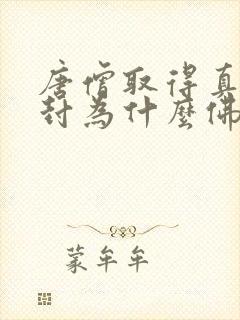 唐僧取得真
封為什麼佛
蒙牟牟